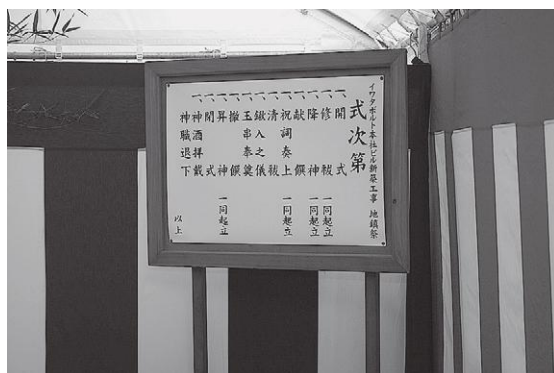 イワタボルト本社ビル新築工事 地鎮祭
式次第
一、開式
一、修祓 一同起立
一、降神 一同起立
一、献饌
一、祝詞奏上 一同起立
一、清祓
一、鍬入之儀
一、玉串奉奠
一、撤饌
一、昇神 一同起立
一、閉式
神酒拝戴
神職退下
以上